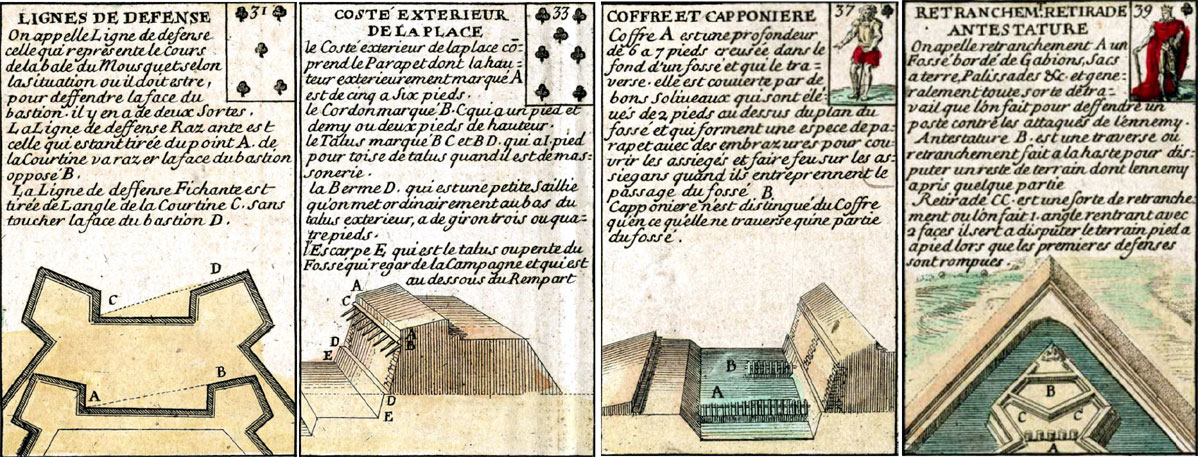 LIGNES DE DEFENSE
31
On appelle Ligne de defense
celle qui represente le Cours
de la bale du Mousquet selon
la situation ou il doit estre,
pour deffendre la face du
bastion. il y en a de deux Sortes.
La Ligne de deffense Razante est
celle qui estant tirée du point A. de
la Courtine va razer la face du bastion
opposé B.
La Ligne de deffense Fichante est
tirée de Langle de la Courtine C. sans
toucher la face du bastion D.
D
C
B
A
COSTÉ EXTERIEUR
DE LA PLACE
33
le Costé exterieur de la place cõ=
prend le Parap et dont la hau=
teur exterieurement marqué A
est de cinq a Six pieds.
le Cordon marqué B. C qui a un pied et
demy ou deux pieds de hauteur.
le Talus marqué B C et B D. qui a 1. pied
pour toise de talus quand il est de mas=
sonerie.
la Berme D. qui est une petite Saillie
qu'on met ordinairement au bas du
talus exterieur, a de giron trois ou qua=
tre pieds.
l'Escarpe E, qui est le talus ou pente du
Fossé qui regarde la Campagne et qui est
au dessous du Rempart
A
C
A
B
D
E
D
E
COFFRE ET CAPPONIERE
37
Coffre A est une profondeur
de 6 a 7 pieds creusée dans le
fond d'un fossé et qui le tra=
verse. elle est couuerte par de
bons soliueaux qui sont éle=
ués de 2 pieds au dessus du plan du
fossé et qui forment une espece de pa=
rapet auec des embrazures pour cou=
vrir les assiegés et faire feu sur les as=
siegans quand ils entreprennent le
passage du fossé B.
Capponiere n'est distingué du Coffre
qu'en ce qu'elle ne traverse qu'ine partie
du fossé.
B
A
RETRANCHEMt. RETIRADE
39
ANTESTATURE
On apelle retranchement A un
Fossé bordé de Gabions, Sacs
a terre, Palissades &c. et gene=
ralement toute sorte de tra=
vail que lón fait pour deffendre un
poste contre les attaques de lénnemy.
Antestature B. est une traverse où
retranchement fait a la haste pour dis=
puter un reste de terrain dont lénnemy
a pris quelque partie
Retirade CC. est une sorte de retranche
ment ou lón fait 1. angle rentrant avec
2 faces il sert a disputer le terrain pied a
a pied lors que les premieres defenses
sont rompues.
B
C
C
A